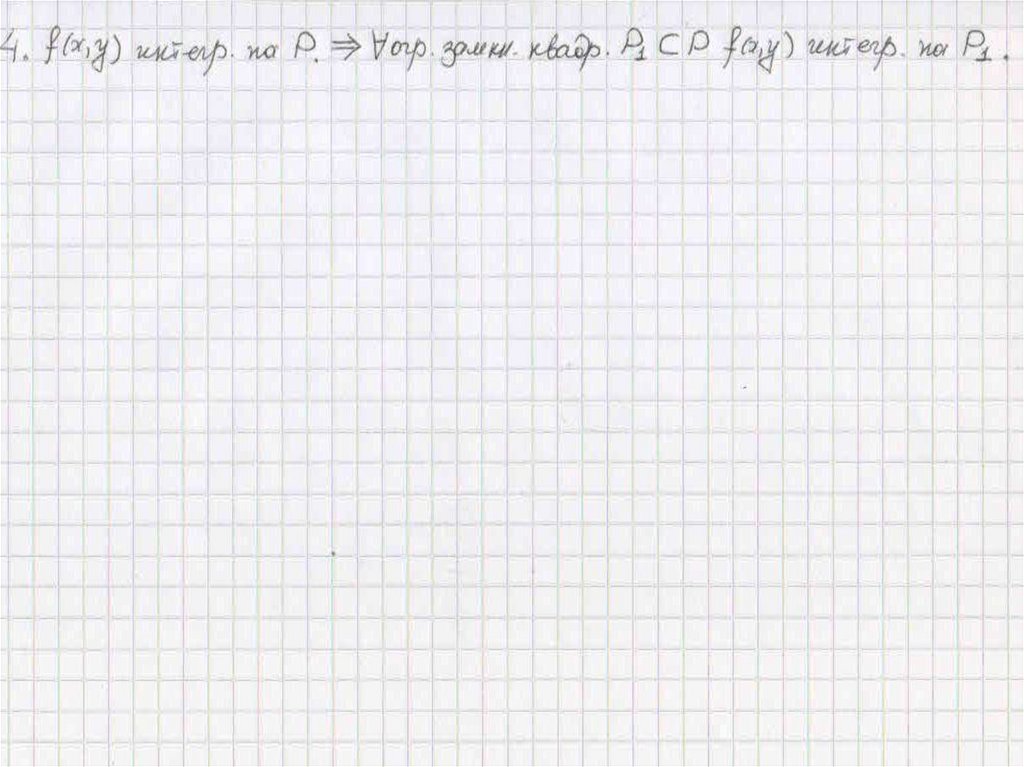 4. f(x,y) интегр. на D. ⇒ ∀ огр. замкн. квадр. D₁ ⊂ D f(x,y) интегр. на D₁.